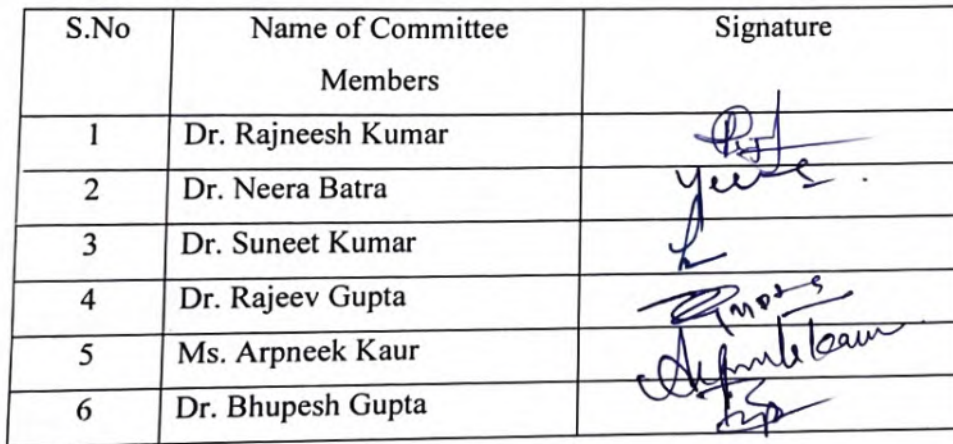 S.No Name of Committee Signature
Members
1 Dr. Rajneesh Kumar
2 Dr. Neera Batra
3 Dr. Suneet Kumar
4 Dr. Rajeev Gupta
5 Ms. Arpneek Kaur
6 Dr. Bhupesh Gupta